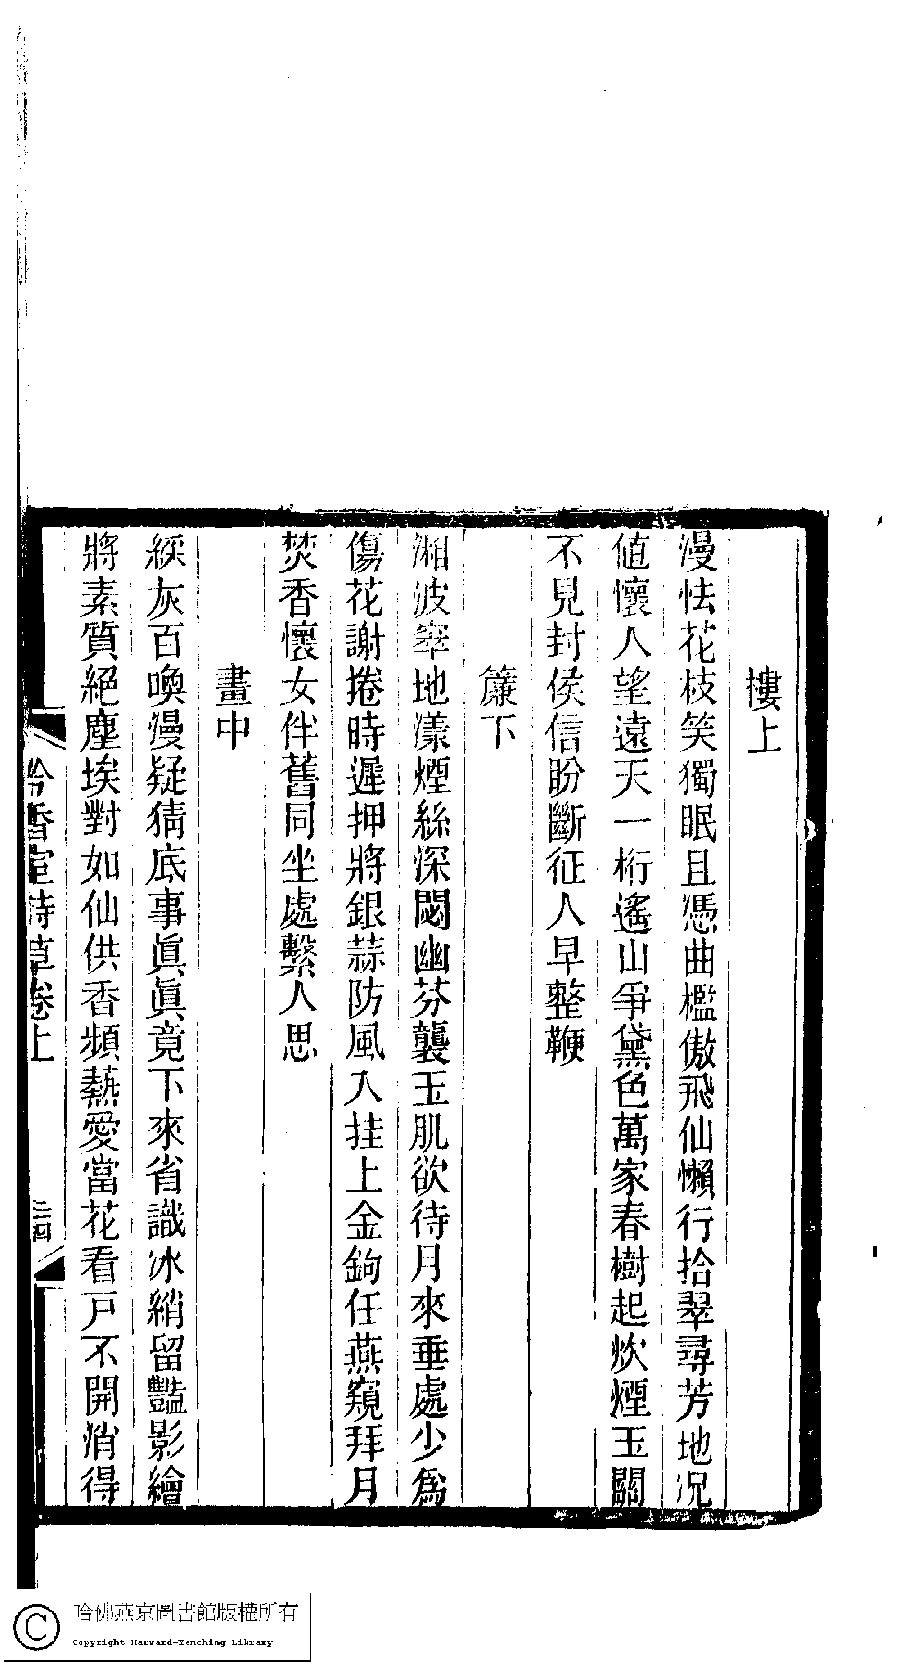 樓上
漫怯花枝笑獨眠且憑曲檻傲飛仙懶行拾翠尋芳地況
値懷人望遠天一桁遙山爭黛色萬家春樹起炊煙玉關
不見封侯信盼斷征人早整鞭
簾下
湘波窣地漾煙絲深閟幽芬襲玉肌欲待月來垂處少爲
傷花謝捲時遲押將銀蒜防風入挂上金鉤任燕窺拜月
焚香懷女伴舊同坐處繫人思
畫中
綵灰百喚漫疑猜底事眞眞竟下來省識冰綃留豔影繪
將素質絕塵埃對如仙供香頻熱愛當花看戸不開消得
吟香室詩草卷上
二四
哈佛燕京圖書館版權所有
Copyright Harvard-Yenching Library